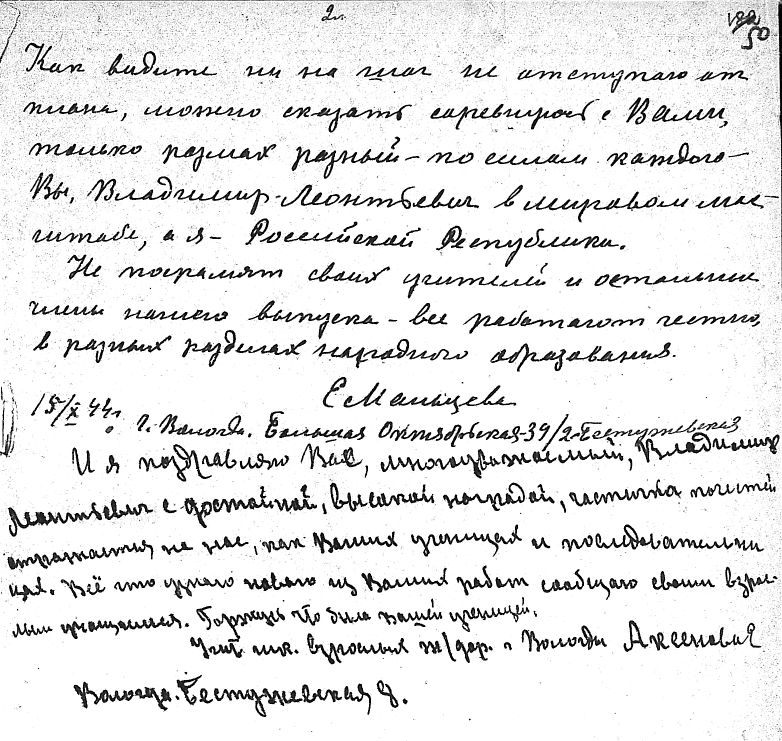 2л
50
Как видите ни на шаг не отступаю от
плана, можно сказать соревнуюсь с Вами,
только размах разный – по силам каждого –
Вы, Владимир Леонтьевич в мировом мас-
штабе, а я – Российской Республики.
Не посрамят своих учителей и остальные
члены нашего выпуска – все работают честно,
в разных разделах народного образования.
Е Мальцева
15/X 44г.
г. Вологда. Большая Октябрьская-39/2-Бестужевская
И я поздравляю Вас, многоуважаемый, Владимир
Леонтьевич с достойной, высокой наградой, частичка почестей
отражается на нас, как Ваших ученицах и последовательни
цах. Всё что узнаю нового из Ваших работ сообщаю своим взрос-
лым учащимся. Горжусь что была вашей ученицей.
Учит. шк. взрослых ж/дор. г Вологды Аксенова Е
Вологда. Бестужевская 8.